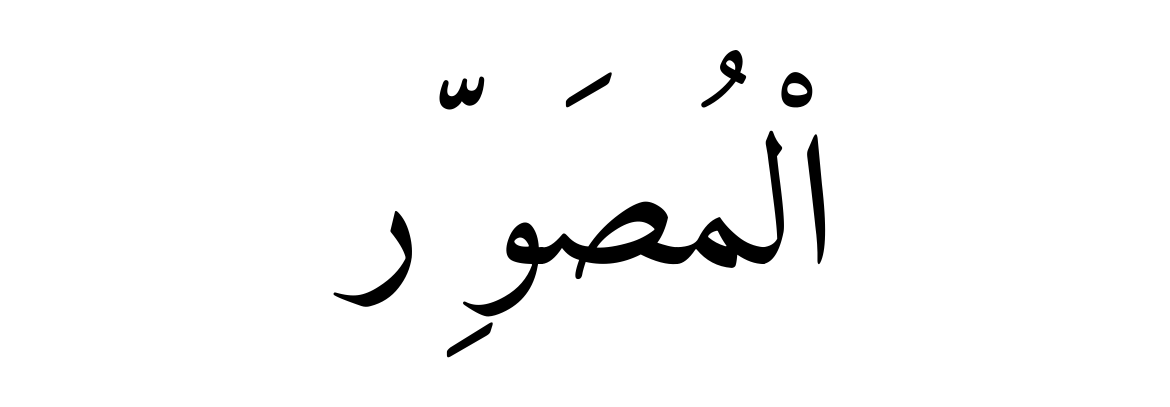 الْمُصَوِّر